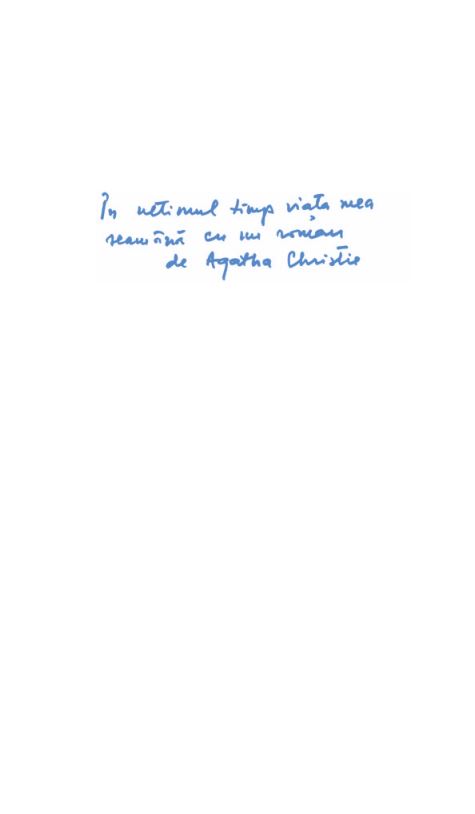 În ultimul timp viața mea
seamănă cu un roman
de Agatha Christie